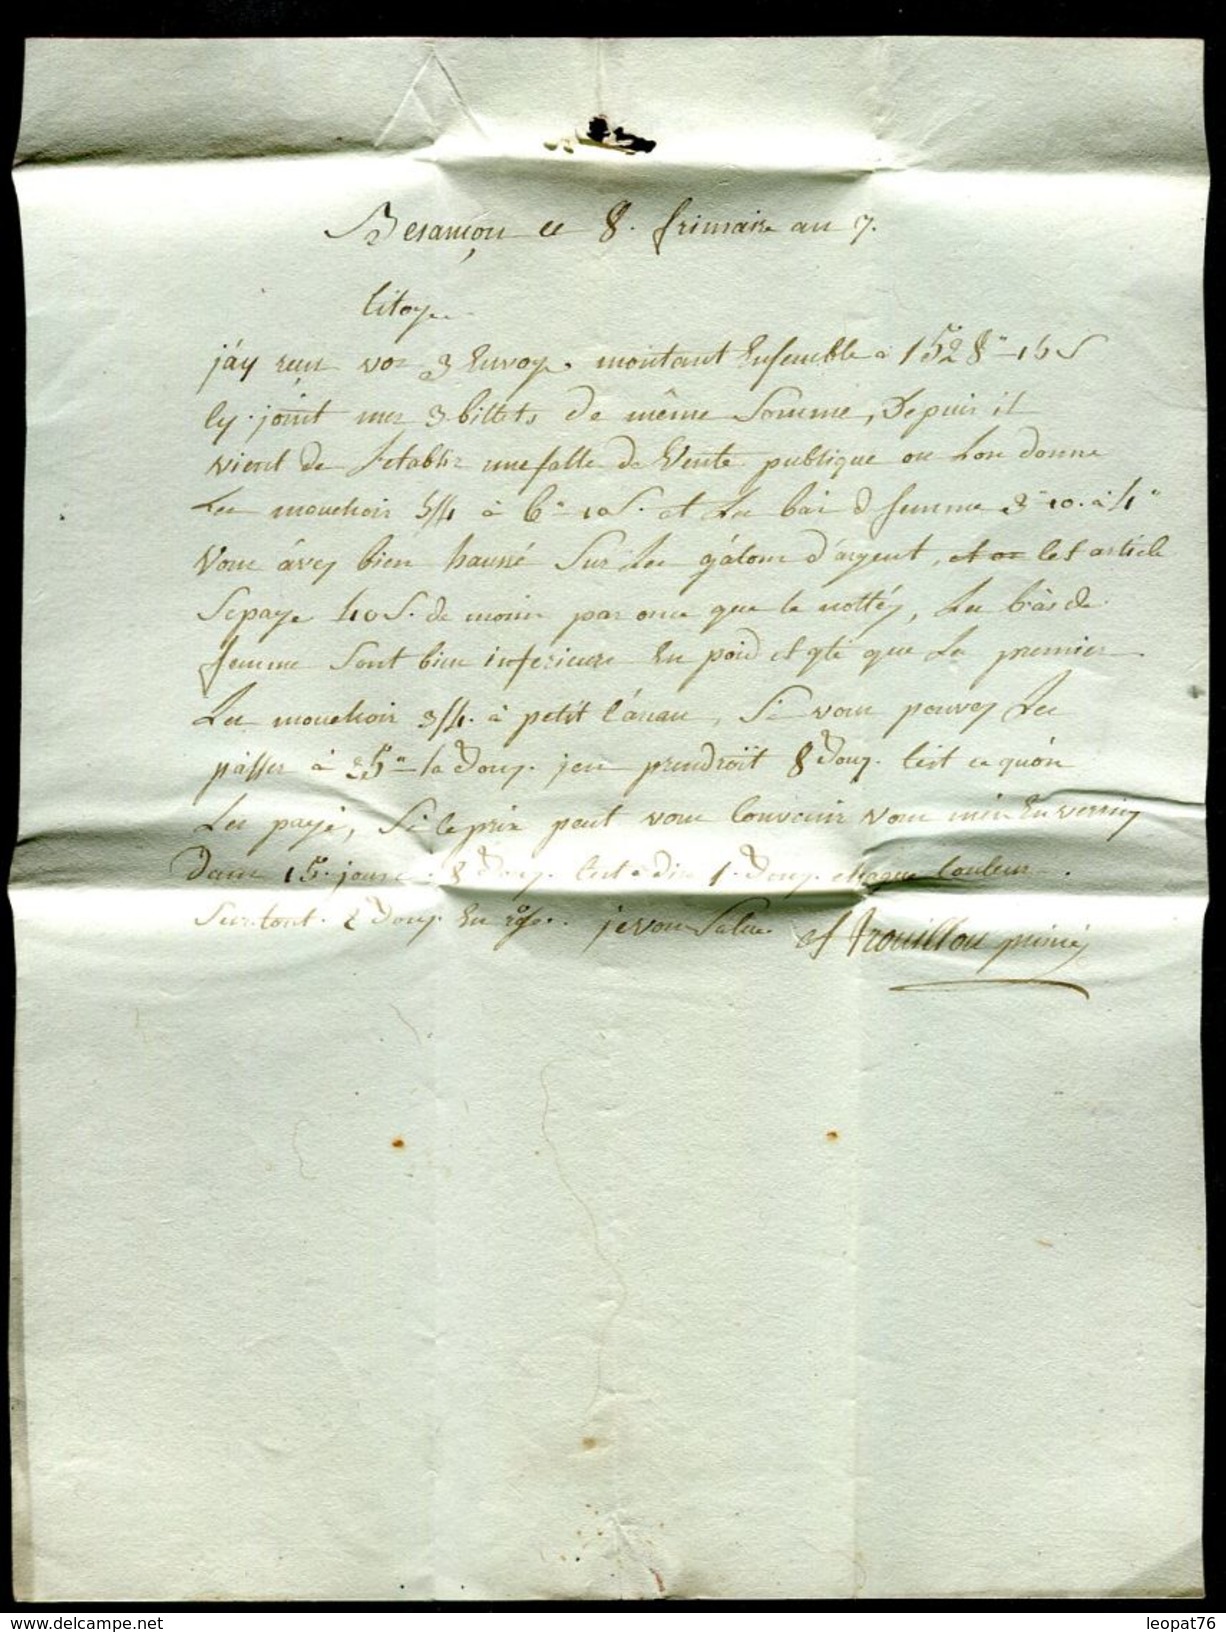 Besançon ce 8. frimaire an 7.
Citoyen
j'áy reçu vos 3 Envoys. montant Ensemble à 1528"-15 S
Cy-joint mes 3 billets de même Somme, Depuis il
vient de s'etablir une salle de Vente publique ou l'on donne
Les mouchoir 5/4 à 6"-10 S. et Les bas d femme 3"10. à 4"
Vous ávez bien haussé Sur Les gálons d'argent, et cet article
Se paye 40 S. de moins par once que le nottéz, Les bás de
femme Sont bien inferieure En poid et qté que Les premier
Les mouchoir 3/4. à petit Cáreau, Si vous pouvez Les
pásser à 25" la Douz. j'en prendroit 8 Douz. C'est ce qu'ón
Les paye, Si le prix peut vous Convenir vous m'en Enverriez
Dans 15. jours. 8 Douz. C'est à dire 1. Douz. chaque Couleur
Surtout. 2 Douz. En . je vous Salue. Trouillon
leopat76